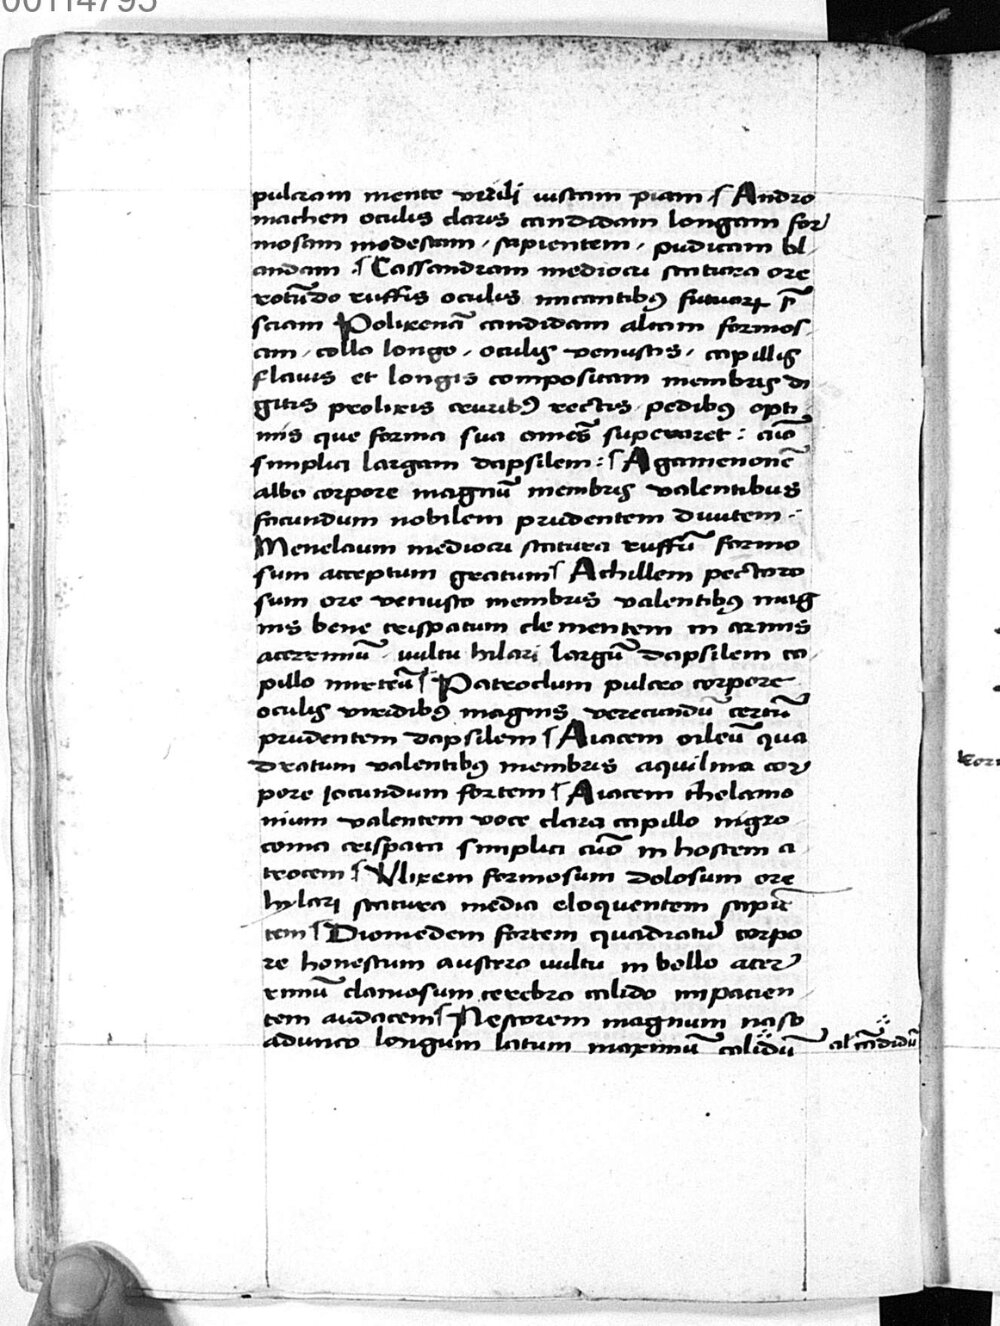 00114795
pulcram mente virili iustam piam ⸝ Andro
machen oculis claris candidam longam for
mosam modestam / sapientem / pudicam bl
andam ⸝ Cassandram mediocri statura ore
rotūdo ruffis oculis micantibꝰ futuroꝝ p̄
sciam Polixenā candidam altam formos
am / collo longo / oculis venustis / capillis
flavis et longis compositam membris di
gitis prolixis cruribꝰ rectis pedibꝰ opti
mis que forma sua omēs superaret : aīo
simplici largam dapsilem : Agamenonē
albo corpore magnū membris valentibus
facundum nobilem prudentem divitem :
Menelaum mediocri statura ruffū formo
sum acceptum gratum Achillem pectoro
sum ore venusto membris valentibꝰ mag
nis bene crispatum clementem in armis
acerrimū vultu hilari largū dapsilem ca
pillo mirteū Patroclum pulcro corpore
oculis viridibꝰ magnis verecundū certū
prudentem dapsilem Aiacem oileū qua
dratum valentibꝰ membris aquilina cor
pore iocundum fortem Aiacem thelamo
nium valentem voce clara capillo nigro
coma crispata simplici aīo in hostem a
trocem Ulixem formosum dolosum ore
hylari statura media eloquentem sapiē
tem Diomedem fortem quadratū corpo
re honestum austero vultu in bello acer
rimū clamosum cerebro calido impacien
tem audacem Nestorem magnum naso
adunco longum latum maximū calidū al' cādidū